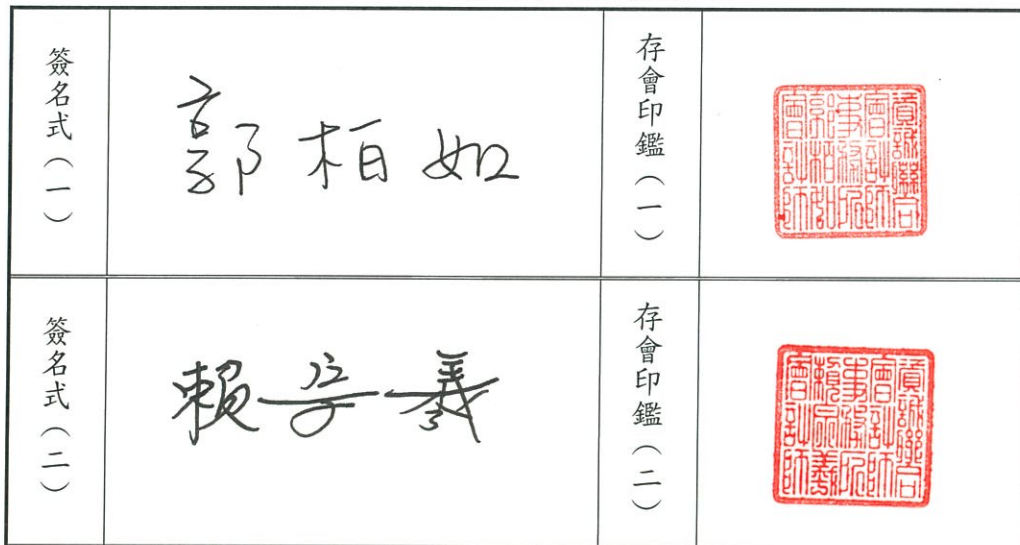 簽名式(一)
郭柏如
存會印鑑(一)
聯合
會計師
事務所
郭柏如
會計師
簽名式(二)
賴
羲
存會印鑑(二)
聯合
會計師
事務所
會計師